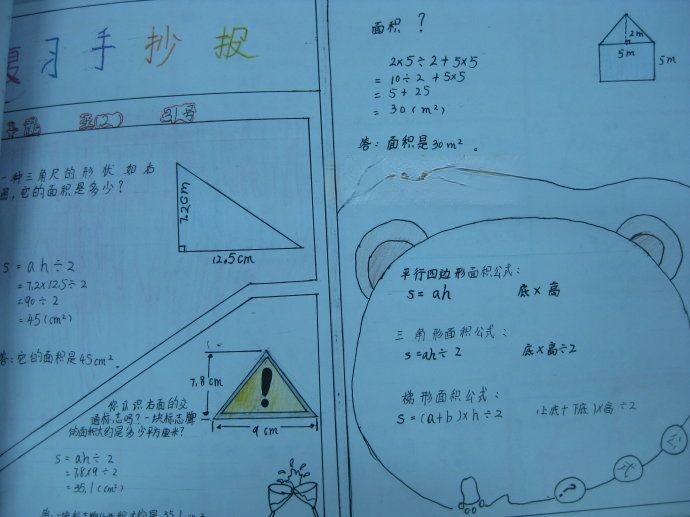 复习手抄报
五(2) 31号
一种三角尺的形状如右
图,它的面积是多少?
7.2cm
12.5cm
S=ah÷2
=7.2×12.5÷2
=90÷2
=45(cm²)
答:它的面积是45cm²。
7.8cm
9cm
!
你认识右面的交
通标志吗?一块标志牌
的面积大约是多少平方厘米?
S=ah÷2
=7.8×9÷2
=35.1(cm²)
面积?
2×5÷2+5×5
=10÷2+5×5
=5+25
=30(m²)
答:面积是30m²。
2m
5m
5m
平行四边形面积公式:
S=ah 底×高
三角形面积公式:
S=ah÷2 底×高÷2
梯形面积公式:
S=(a+b)×h÷2 (上底+下底)×高÷2